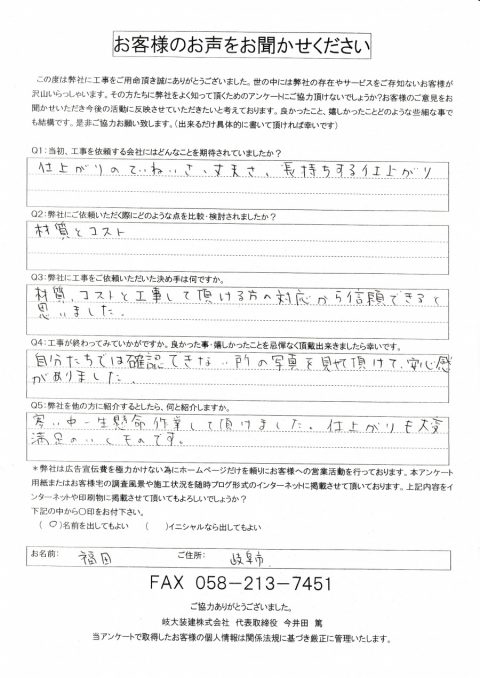 お客様のお声をお聞かせください
この度は弊社に工事をご用命頂き誠にありがとうございました。世の中には弊社の存在やサービスをご存知ないお客様が
沢山いらっしゃいます。その方たちに弊社をよく知って頂くためのアンケートにご協力頂けないでしょうか?お客様のご意見をお
聞かせいただき今後の活動に反映させていただきたいと考えております。良かったこと、嬉しかったことどのような些細な事で
も結構です。是非ご協力お願い致します。(出来るだけ具体的に書いて頂ければ幸いです)
Q1:当初、工事を依頼する会社にはどんなことを期待されていましたか?
仕上がりのていねいさ、丈夫さ、長持ちする仕上がり
Q2:弊社にご依頼いただく際にどのような点を比較・検討されましたか?
材質とコスト
Q3:弊社に工事をご依頼いただいた決め手は何ですか。
材質、コストと工事して頂ける方の対応から信頼できると
思いました。
Q4:工事が終わってみていかがですか。良かった事・嬉しかったことを忌憚なく頂戴出来きましたら幸いです。
自分たちでは確認できない所の写真を見せて頂けて、安心感
がありました。
Q5:弊社を他の方に紹介するとしたら、何と紹介しますか。
寒い中一生懸命作業して頂けました。仕上がりも大変
満足のいくものです。
*弊社は広告宣伝費を極力かけない為にホームページだけを頼りにお客様への営業活動を行っております。本アンケート
用紙またはお客様宅の調査風景や施工状況を随時ブログ形式のインターネットに掲載させて頂いております。上記内容をイ
ンターネットや印刷物に掲載させて頂いてもよろしいでしょうか?
下記の中から〇印をお付下さい。
(○)名前を出してもよい ( )イニシャルなら出してもよい
お名前: 福田 ご住所: 岐阜市
FAX 058-213-7451
ご協力ありがとうございました。
岐大装建株式会社 代表取締役 今井田 篤
当アンケートで取得したお客様の個人情報は関係法規に基づき厳正に管理いたします。